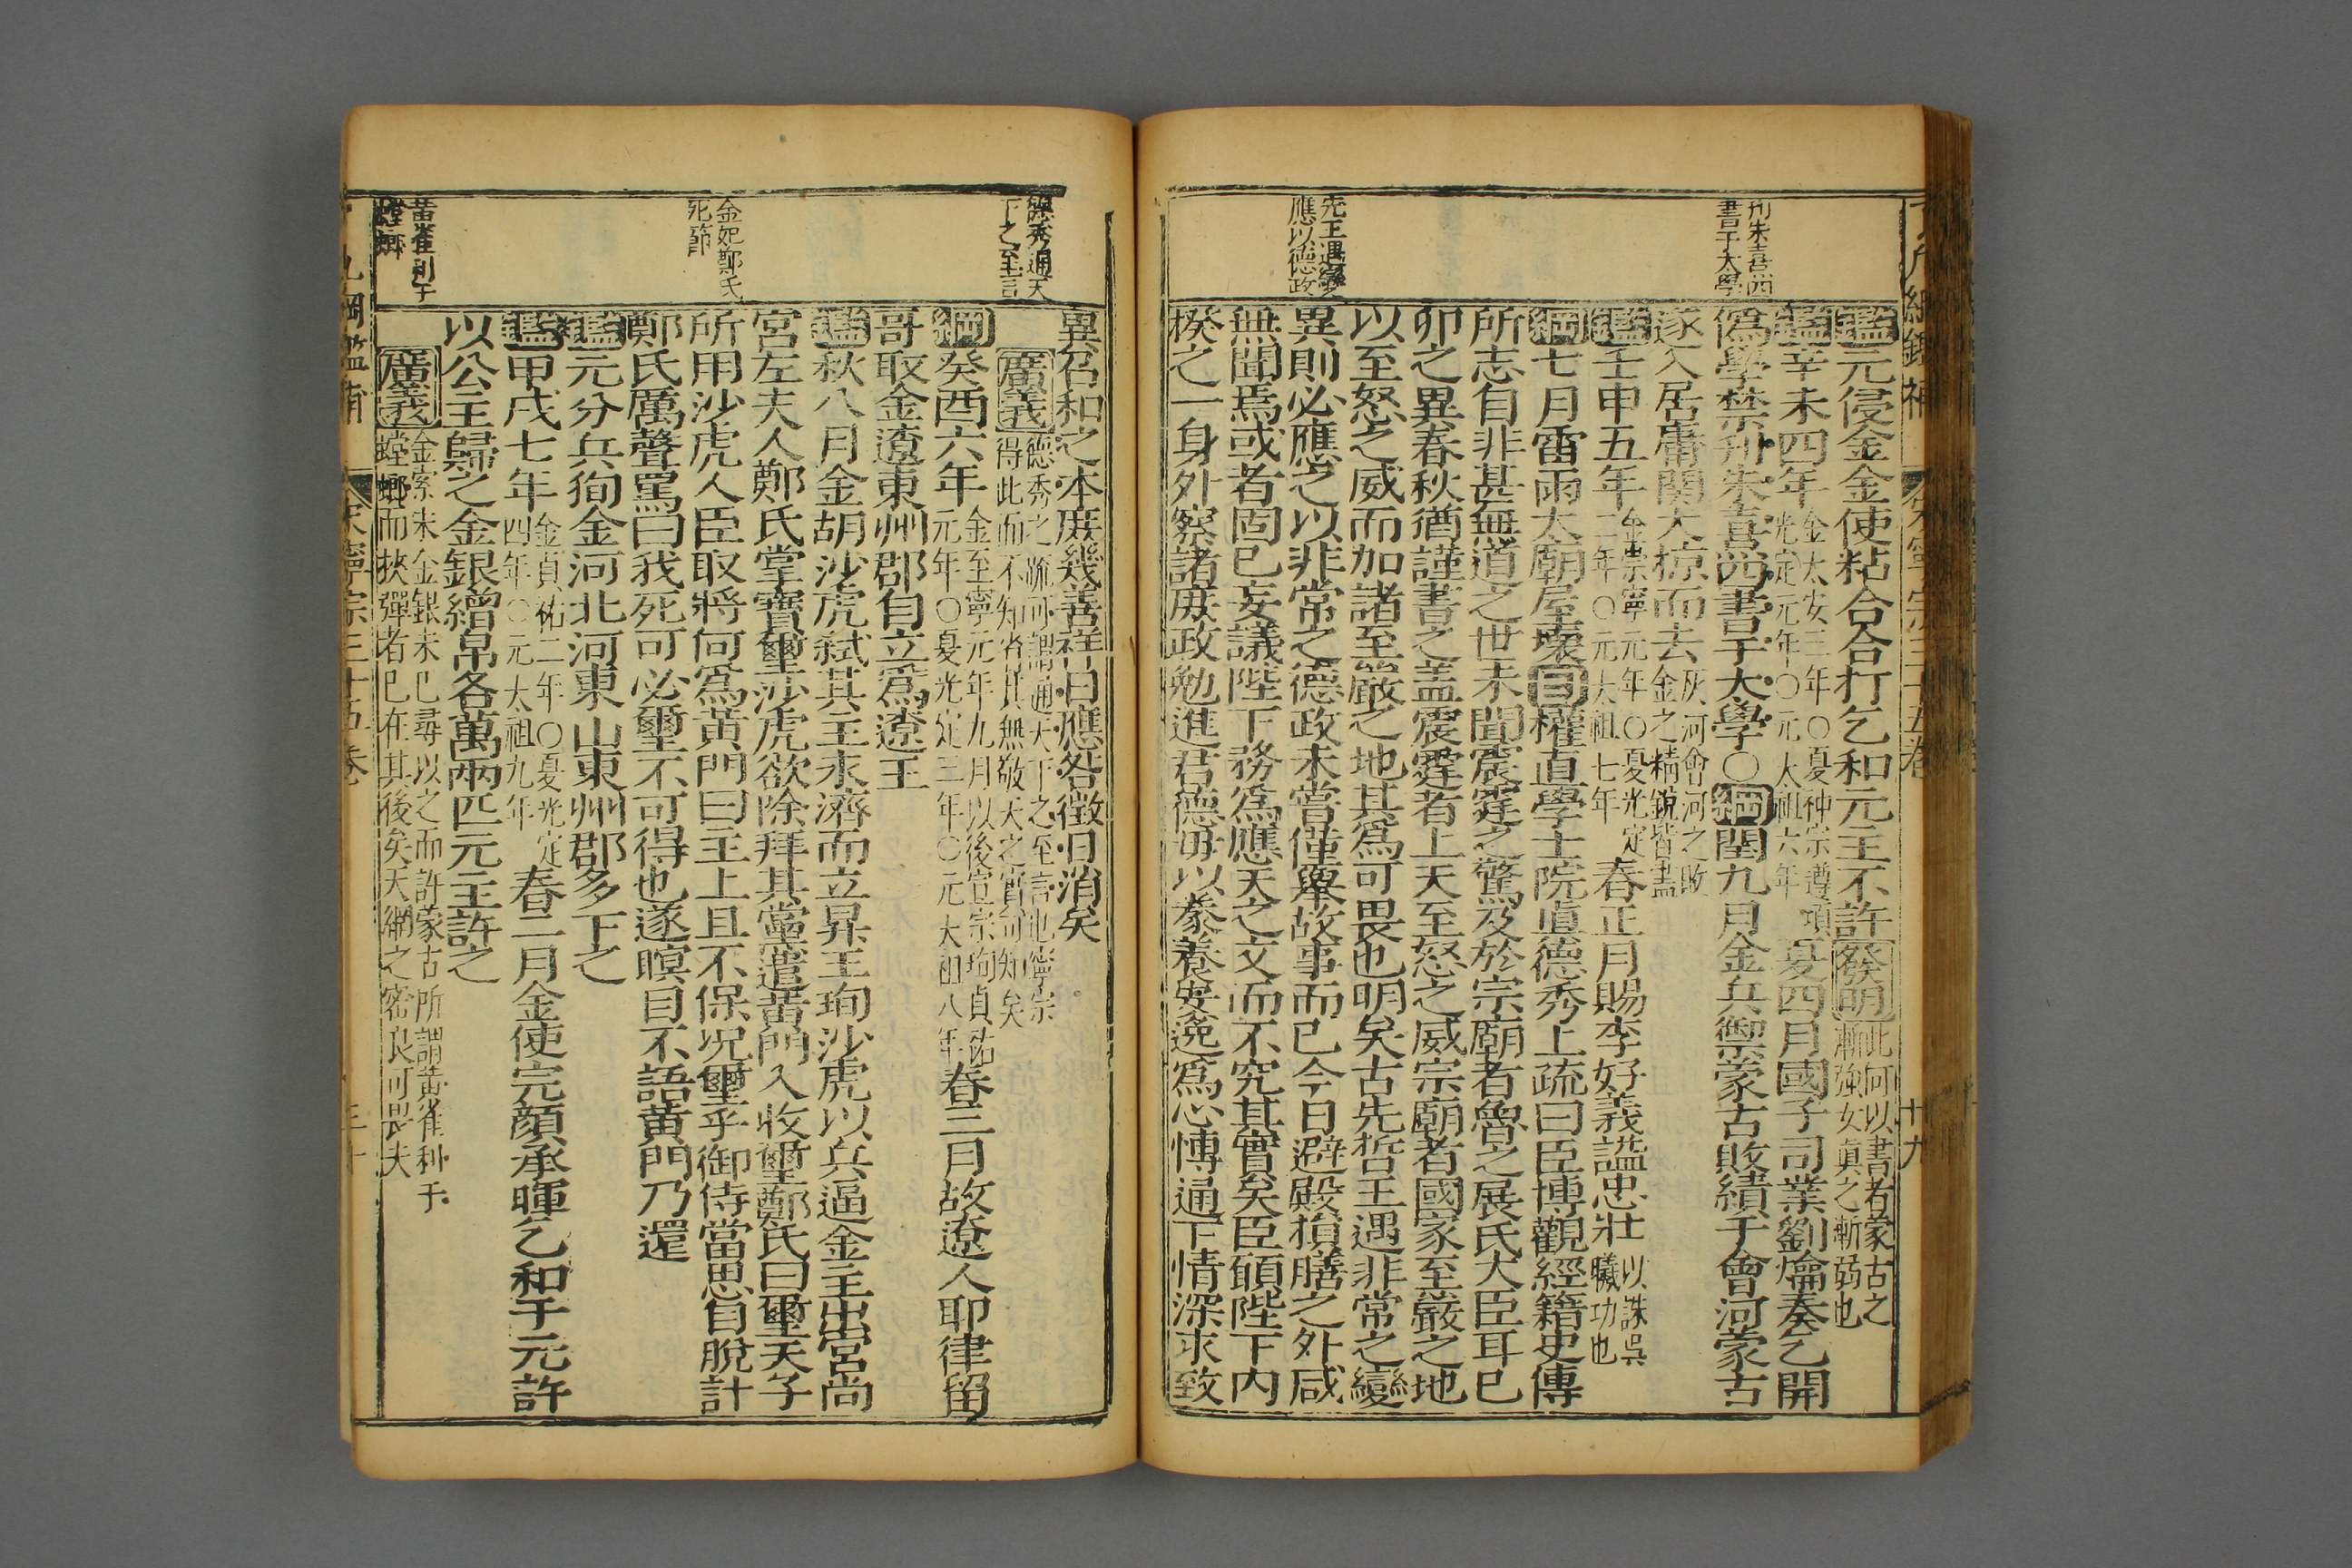 刋朱熹四
書于大學
先王遇災變
應以德政
鑑元侵金金使粘合合打乞和元主不許發明此何以書者蒙古之
漸強女真之漸弱也
鑑辛未四年金太安三年○夏神宗遵頊
光定元年○元太祖六年夏四月國子司業劉爚奏乞開
偽學禁刋朱熹四書于大學○綱閏九月金兵禦蒙古敗績于會河蒙古
遂入居庸關大掠而去灰河會河之敗
金之精銳皆盡
鑑壬申五年金崇寧元年○夏光定
二年○元太祖七年春正月賜李好義謚忠壯以誅吳
曦功也
綱七月雷雨太廟屋壞目權直學士院真德秀上疏曰臣博觀經籍史傳
所志自非甚無道之世未聞震霆之驚及於宗廟者魯之展氏大臣耳已
卯之異春秋猶謹書之盖震霆者上天至怒之威宗廟者國家至嚴之地
以至怒之威而加諸至嚴之地其爲可畏也明矣古先哲王遇非常之變
異則必應之以非常之德政未嘗僅舉故事而已今日避殿損膳之外咸
無聞焉或者固已妄議陛下務爲應天之文而不究其實矣臣願陛下内
揆之一身外察諸厥政勉進君德毋以豢養安逸爲心博通下情深求致
宋寧宗三十五卷
十九
德秀通天
下之至言
金妃鄭氏
死節
黃雀利于
螳螂
異召和之本庶幾善祥日應咎徵日消矣
廣義德秀之疏可謂通天下之至言也寧宗
得此而不知省其無敬天之實可知矣
綱癸酉六年金至寧元年九月以後宣宗珣貞祐
元年○夏光定三年○元太祖八年春三月故遼人耶律留
哥取金遼東州郡自立爲遼王
鑑秋八月金胡沙虎弑其主永濟而立昇王珣沙虎以兵逼金主出宮尚
宮左夫人鄭氏掌寶璽沙虎欲除拜其黨遣黃門入收璽鄭氏曰璽天子
所用沙虎人臣取將何爲黃門曰主上且不保况璽乎御侍當思自脫計
鄭氏厲聲罵曰我死可必璽不可得也遂瞑目不語黃門乃還
鑑元分兵狥金河北河東山東州郡多下之
鑑甲戌七年金貞祐二年○夏光定
四年○元太祖九年春二月金使完顏承暉乞和于元許
以公主歸之金銀繒帛各萬兩匹元主許之
廣義金索朱金銀未已尋以之而許蒙古所謂黃雀利于
螳螂而挾彈者已在其後矣天網之密良可畏夫
九綱鑑補
宋寧宗三十五卷
二十